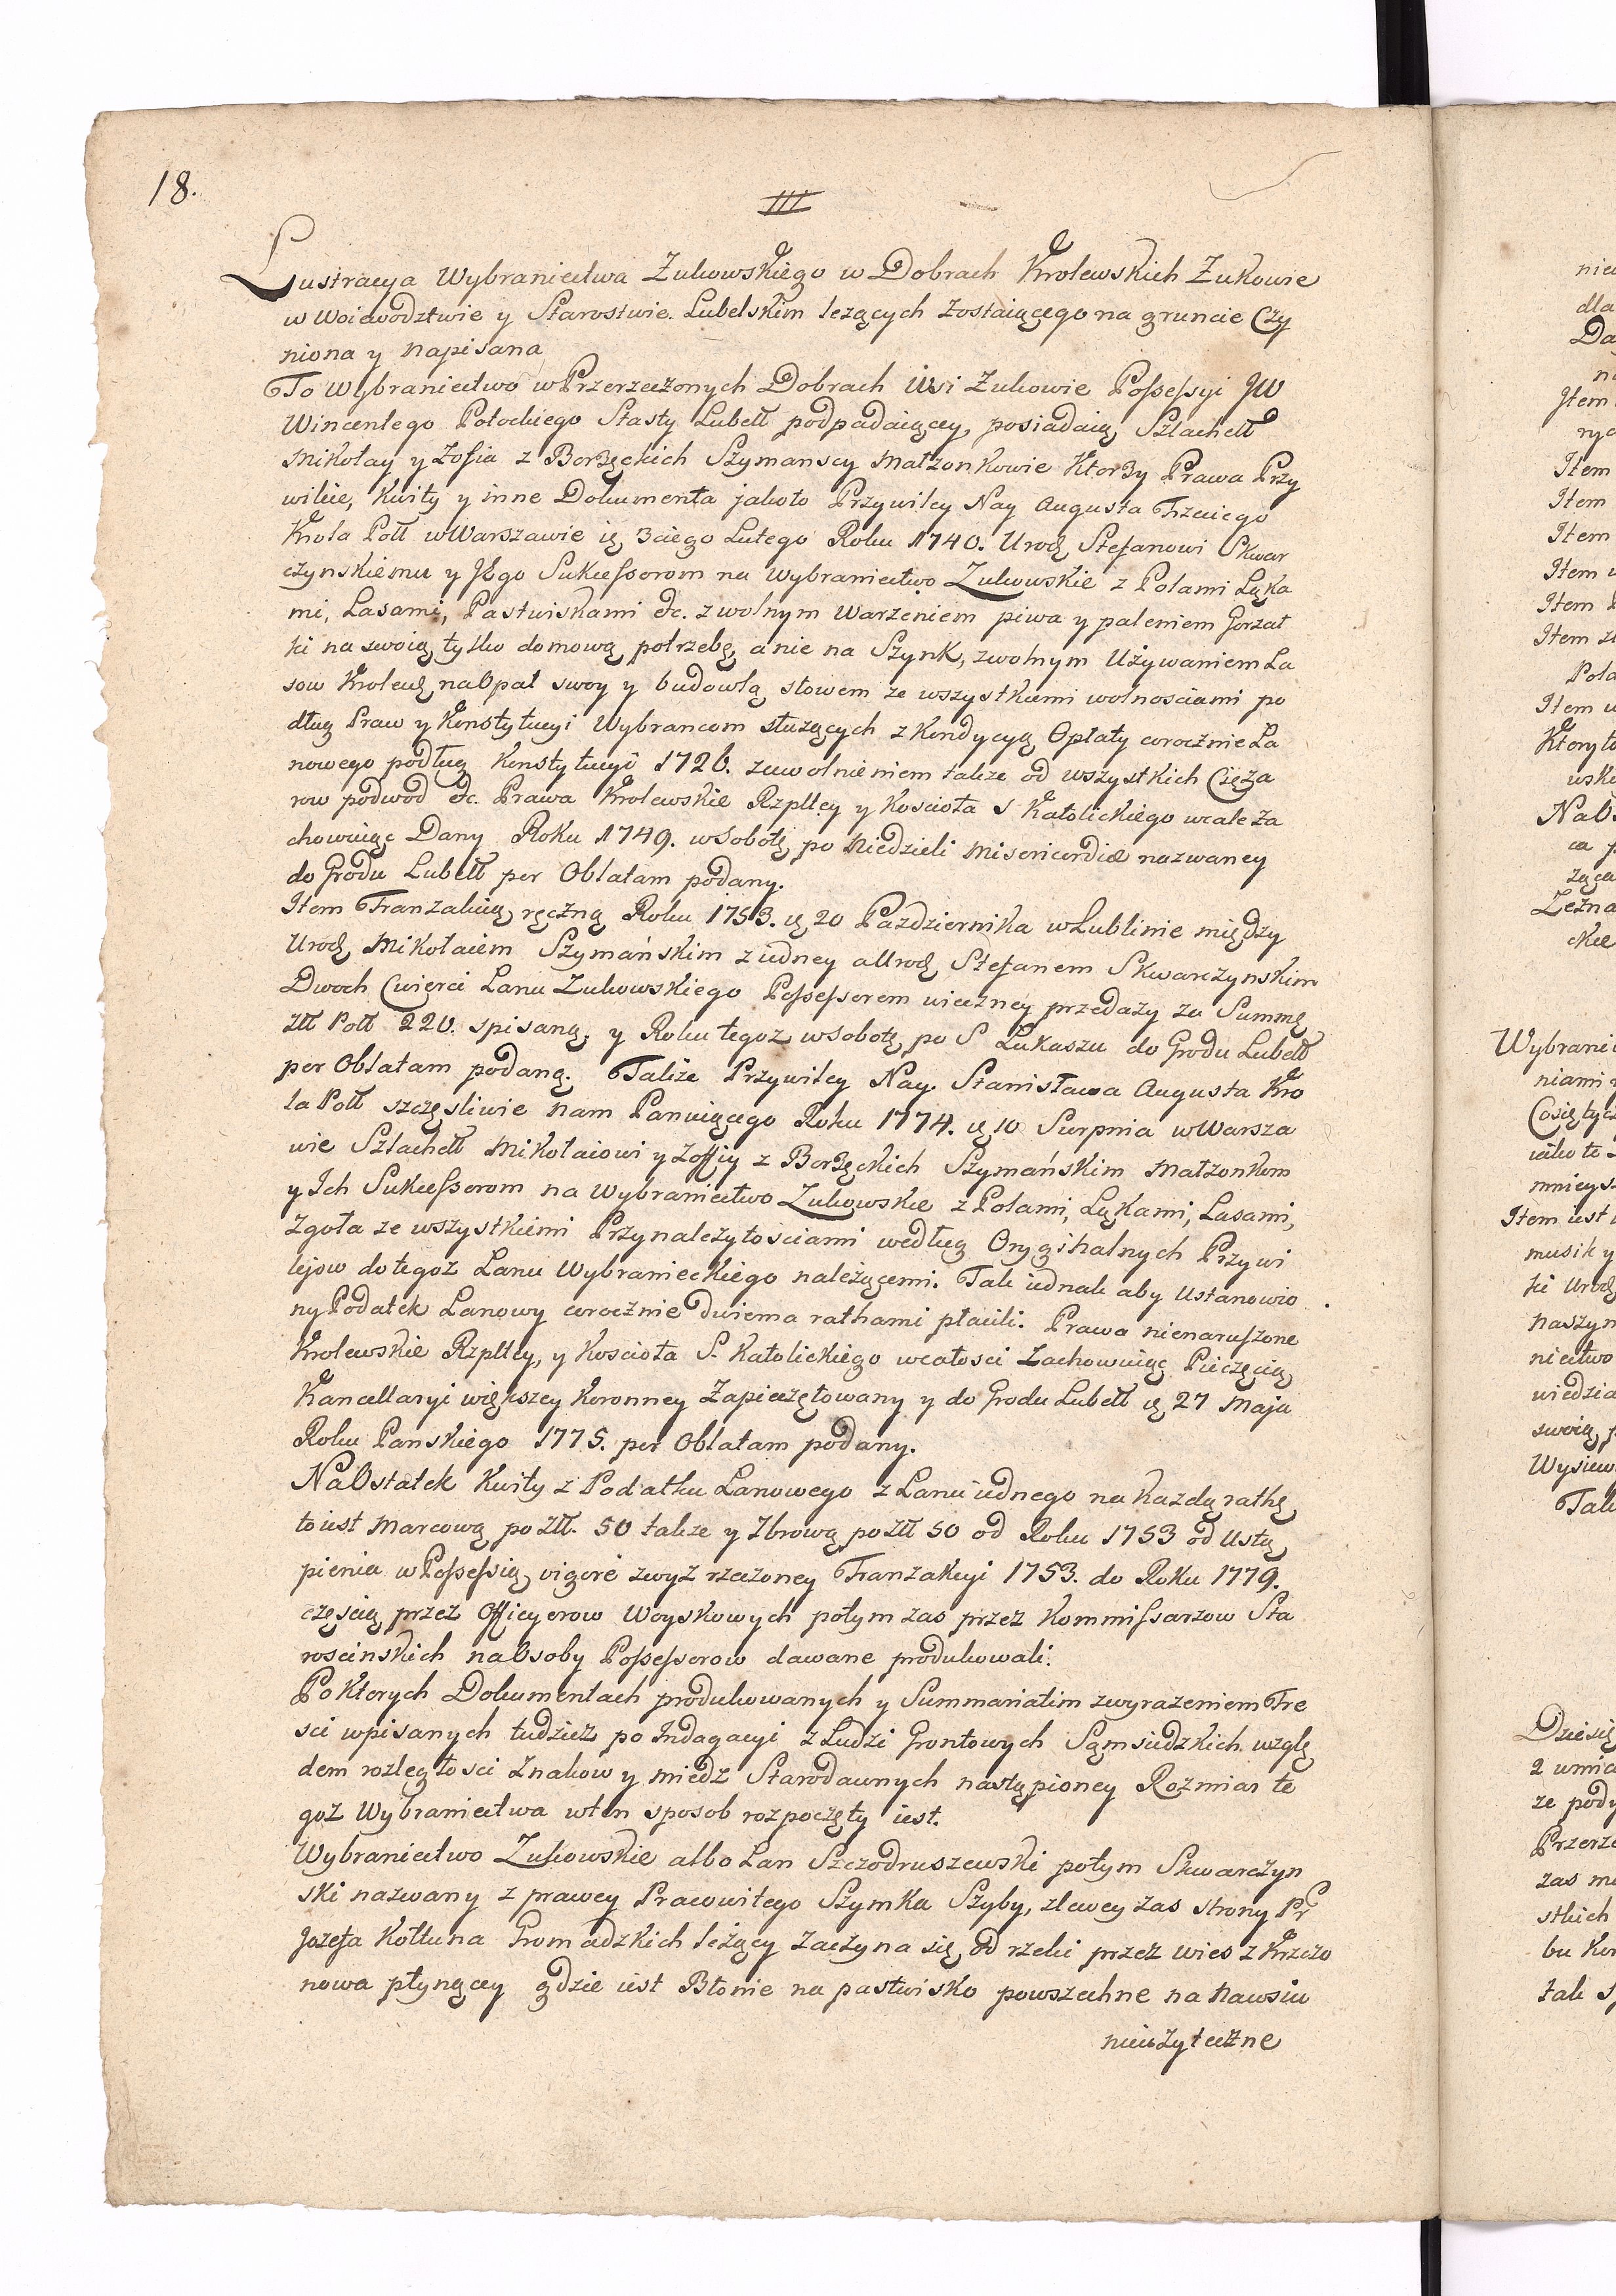 18.
III
Lustracya Wybraniectwa Zukowskiego w Dobrach Krolewskich Zukowie
w Woiewodztwie y Starostwie Lubelskim lezących zostaiącego na gruncie Czy
niona y napisana
To Wybraniectwo w Przerzeczonych Dobrach Wsi Zukowie Possessyi JW
Wincentego Potockiego Stasty Lubell podpadaiącey, posiadaią Szlachell
Mikołay y Zofia z Borzęckich Szymanscy Małzonkowie Ktorzy Prawa Przy
wileie, Kwity y inne Dokumenta jakoto Przywiley Nay Augusta Trzeciego
Krola Poll w Warszawie ię 3ciego Lutego Roku 1740. Urod Stefanowi Skwar
czynskiemu y JEgo Sukcessorom na Wybraniectwo Zukowskie z Polami Łąka
mi, Lasami, Pastwiskami &c. z wolnym Warzeniem piwa y paleniem Gorzał
ki na swoią tylko domową potrzebę, a nie na Szynk, z wolnym Używaniem La
sow Krolew, na Opał swoy y budowlą słowem ze wszystkiemi wolnosciami po
dług Praw y Konstytucyi Wybrancom słuzących z Kondycyą Opłaty corocznie Ła
nowego podług Konstytucyi 1726. z uwolnieniem takze od wszystkich Cięża
row podwod &c. Prawa Krolewskie Rzpltey y Koscioła S Katolickiego wcale Za
chowuiąc Dany Roku 1749. w Sobotę po Niedzieli Misericordiæ nazwaney
do Grodu Lubell per Oblatam podany.
Item Tranzakcią ręczną Roku 1753. ię 20 Pazdziernika w Lublinie między
Urod Mikołaiem Szymańskim z iedney a Urod Stefanem Skwarczynskim
Dwoch Cwierci Lanu Zukowskiego Possessorem wieczney przedazy za Summę
Złł Poll 220. spisaną, y Roku tegoz w Sobotę po S Łukaszu do Grodu Lubell
per Oblatam podaną. Takze Przywiley Nay. Stanisława Augusta Kro
la Poll szczęsliwie nam Panuiącego Roku 1774. ię 10 Sierpnia w Warsza
wie Szlachell Mikołaiowi y Zoffiy z Borzęckich Szymańskim Małzonkom
y Ich Sukcessorom na Wybraniectwo Zukowskie z Polami, Łąkami, Lasami,
Zgoła ze wszystkiemi Przynalezytosciami według Oryginalnych Przywi
lejow do tegoz Lanu Wybranieckiego nalezącemi. Tak iednak aby Ustanowio
ny Podatek Lanowy corocznie dwiema rathami płacili. Prawa nienaruszone
Krolewskie Rzpltey, y Koscioła S. Katolickiego w całosci Zachowuiąc Pieczęcią
Kancellaryi większey Koronney Zapieczętowany y do Grodu Lubell ię 27 Maja
Roku Panskiego 1775. per Oblatam podany.
Na Ostatek Kwity z Podatku Lanowego z Lanu iednego na Kazdą rathę,
to iest Marcową po Złł. 50 takze y 7brową po Złł 50 od Roku 1753 od Ustą
pienia w Possessią vigore zwyz rzeczoney Tranzakcyi 1753. do Roku 1779.
częscią przez Officyerow Woyskowych potym zas przez Kommissarzow Sta
roscinskich na Osoby Possessorow dawane produkowali.
Po Ktorych Dokumentach produkowanych y Summariatim z wyrazeniem Tre
sci wpisanych tudziez po Indagacyi z Ludzi Grontowych Sąmsiedzkich wzglę
dem rozległosci Znakow y miedz Starodawnych nastąpioney Rozmiar te
goz Wybraniectwa w ten sposob rozpoczęty iest.
Wybraniectwo Zukowskie albo Lan Szczodruszewski potym Skwarczyn
ski nazwany z prawey Pracowitego Szymka Szyby, z lewey zas strony Pr
Jozefa Kołtuna Gromadzkich leżący zaczyna się od rzeki przez wies z Krzczo
nowa płynącey gdzie iest Błonie na pastwisko powszechne na Nawsiu
nieuzyteczne